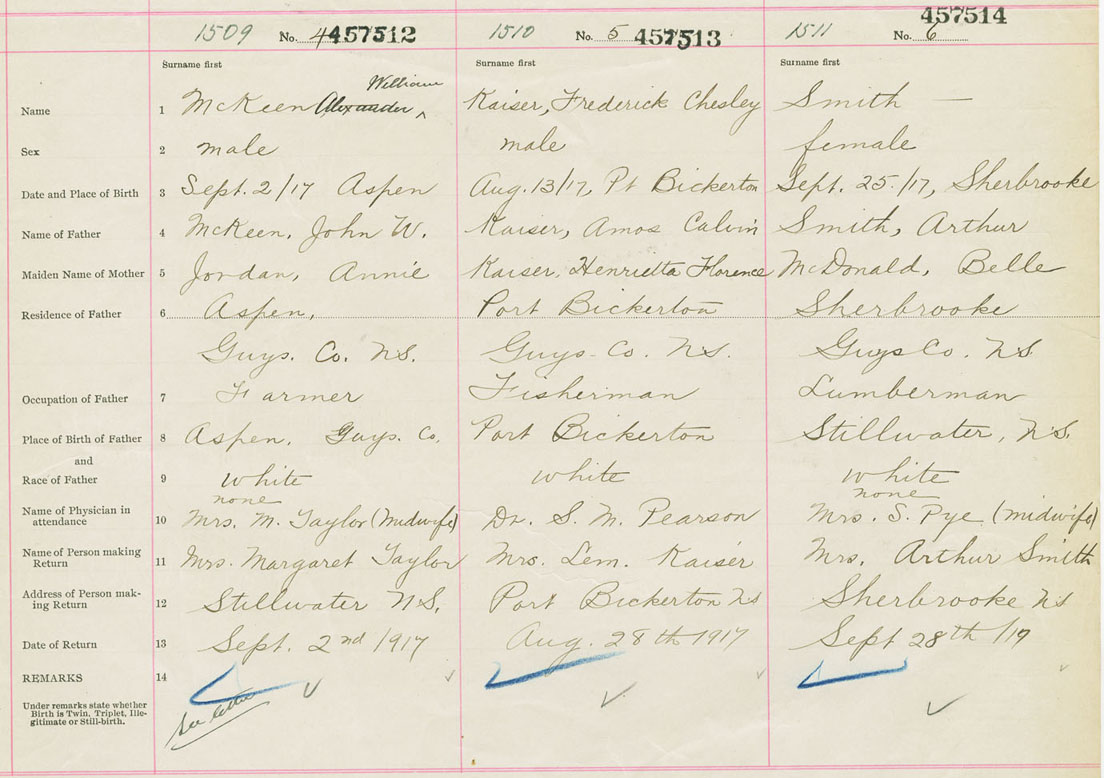 1509 No. 4 457512 1510 No. 5 457513 1511 No. 6 457514
Surname first Surname first Surname first
William
Name 1 McKeen Alexander ^ Kaiser, Frederick Chesley Smith —
Sex 2 male male female
Date and Place of Birth 3 Sept. 2/17 Aspen Aug. 13/17, Pt Bickerton Sept. 25/17, Sherbrooke
Name of Father 4 McKeen, John W. Kaiser, Amos Calvin Smith, Arthur
Maiden Name of Mother 5 Jordan, Annie Kaiser, Henrietta Florence McDonald, Belle
Residence of Father 6 Aspen, Port Bickerton Sherbrooke
Guys. Co. N.S. Guys. Co. N.S. Guys Co. N.S.
Occupation of Father 7 Farmer Fisherman Lumberman
Place of Birth of Father 8 Aspen. Guys. Co. Port Bickerton Stillwater, N.S.
and
Race of Father 9 white white white
none none
Name of Physician in attendance 10 Mrs. M. Taylor (midwife) Dr. S. M. Pearson Mrs. S. Pye (midwife)
Name of Person making Return 11 Mrs. Margaret Taylor Mrs. Lem. Kaiser Mrs. Arthur Smith
Address of Person mak-ing Return 12 Stillwater N.S. Port Bickerton NS Sherbrooke NS
Date of Return 13 Sept. 2nd/1917 Aug. 28th 1917 Sept 28th/17
REMARKS 14
Under remarks state whether
Birth is Twin, Triplet, Ille-
gitimate or Still-birth.
see letter